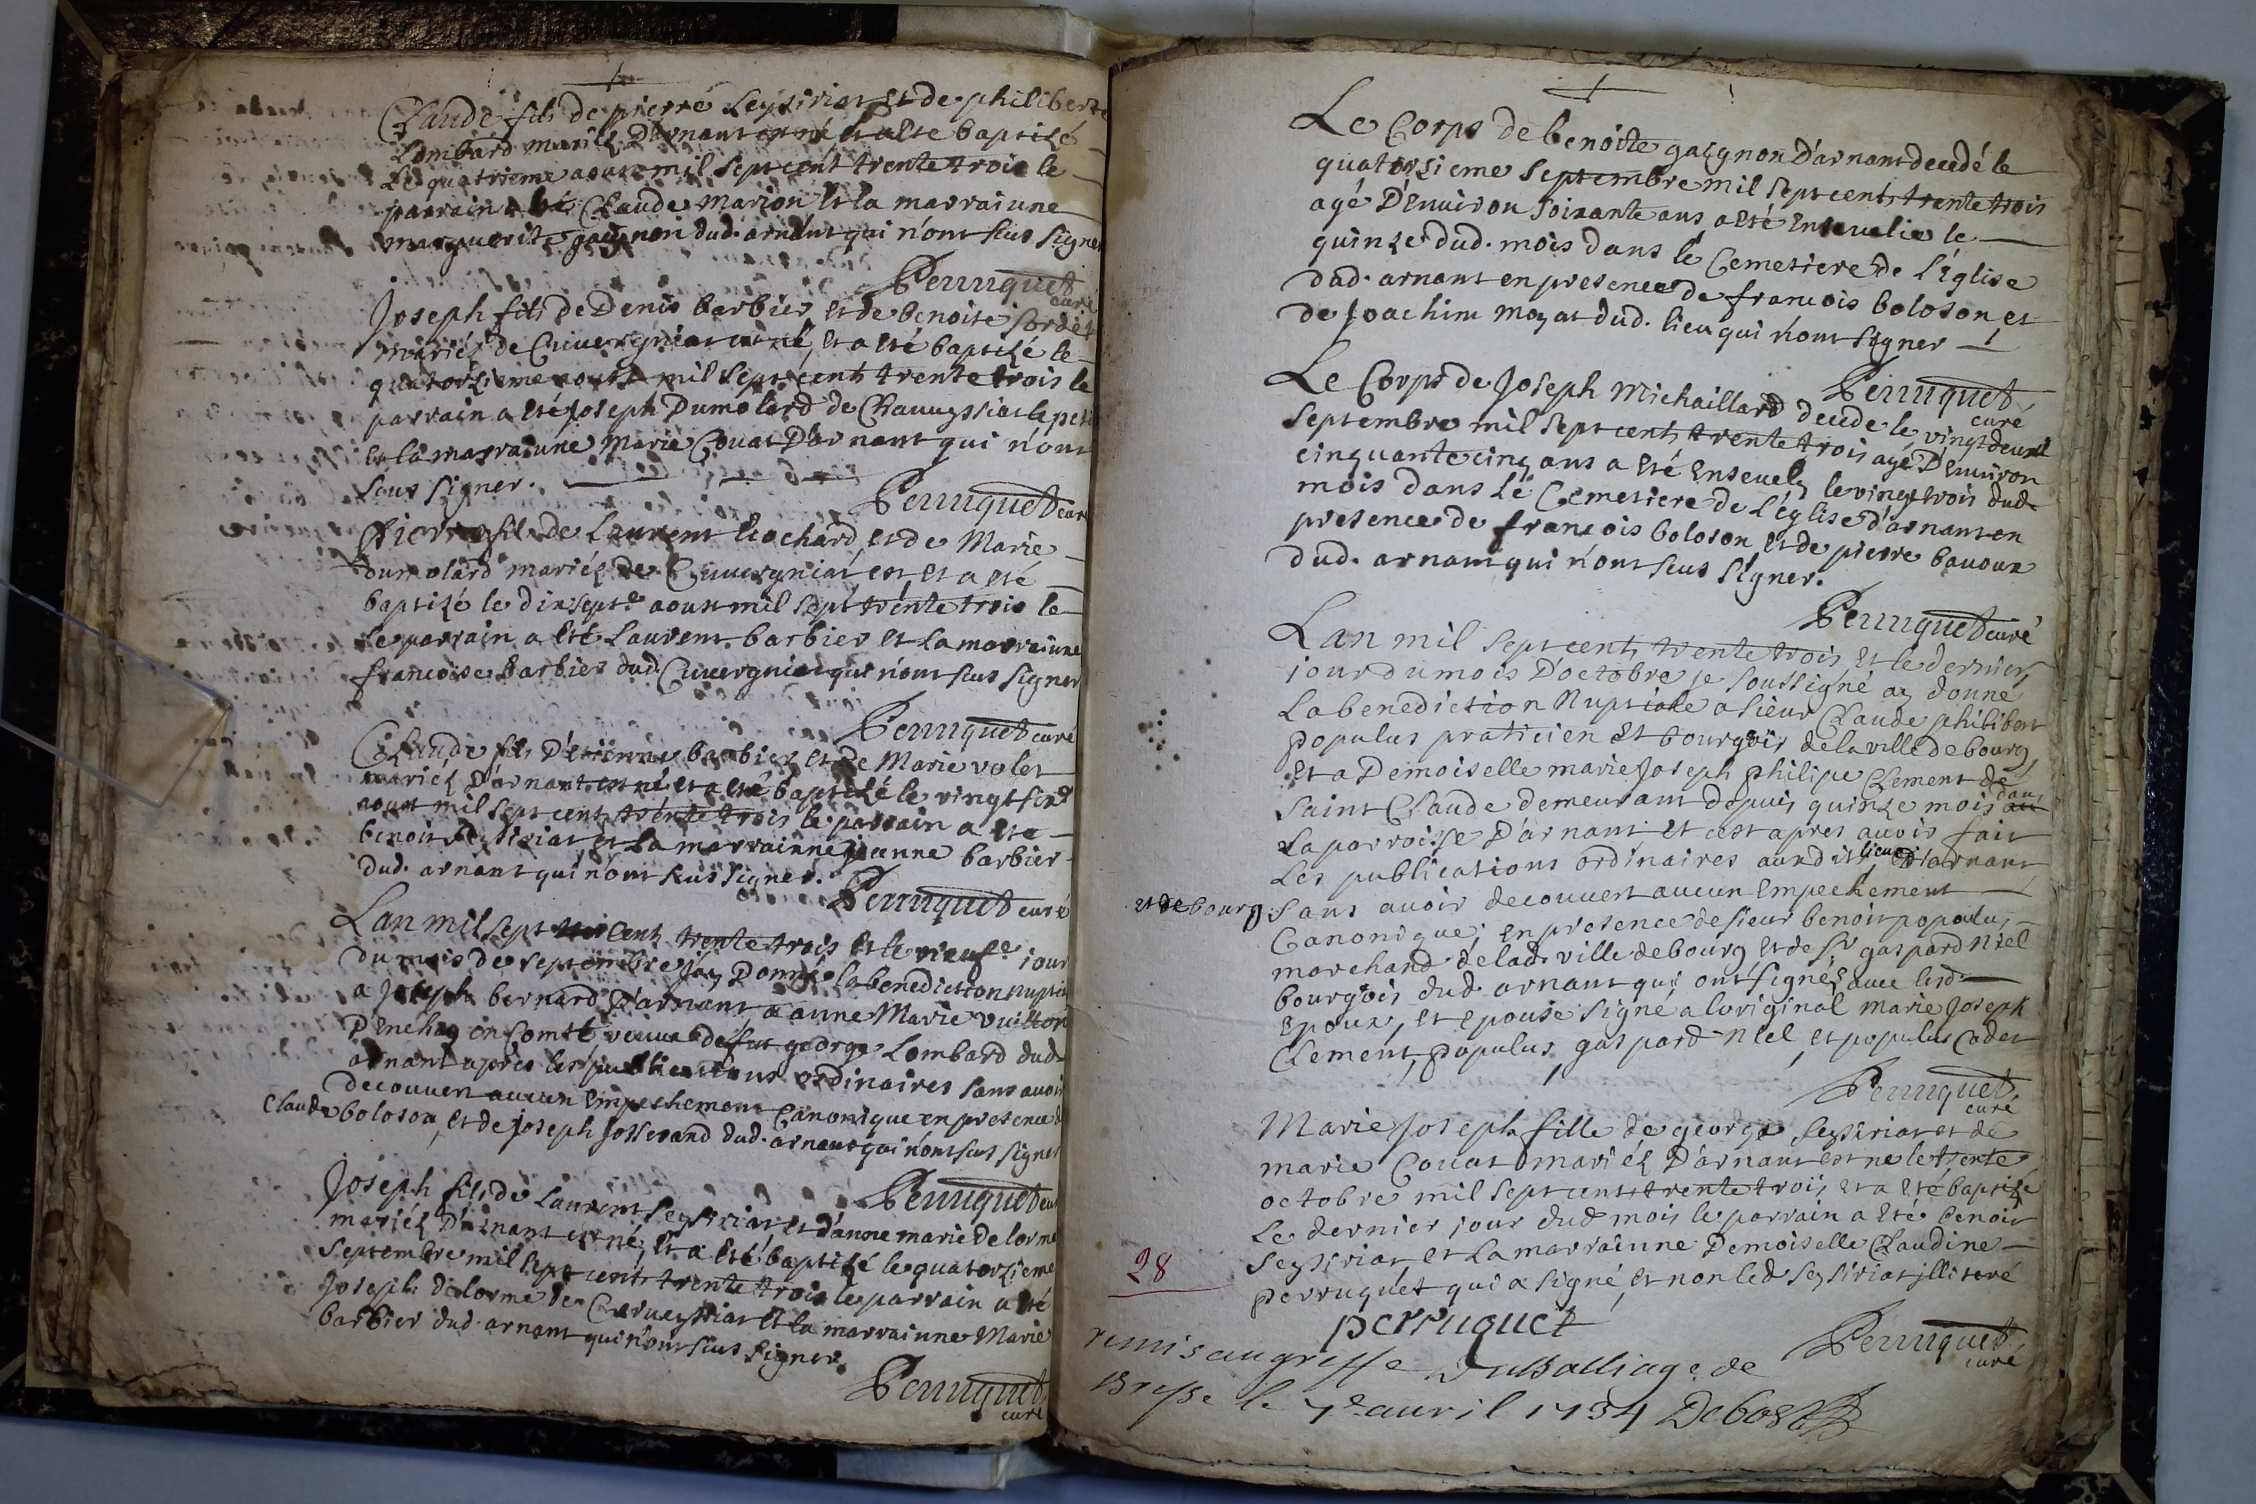 Claude fils de pierre Seysiriat et de philiberte
Lombard mariéz D'arnant est né et a ete baptizé
Le quatrieme aoust mil sept cent trente trois le
parrain a été Claude Marion et la marrainne
marguerite gaugnon dud. arnant qui n'ont sceus signer
Perruquet curé
Joseph fils de Denis barbier et de benoite sordet
mariéz de Cuvergniat est né, et a eté baptizé le
quatorzieme aoust mil sept cents trente trois le
parrain a eté Joseph Dumolard de Chavuyssiat le petit
et la marrainne Marie Couat D'arnant qui n'ont
sceus signer.
Perruquet curé
Pierre fils de Laurent bochard, et de Marie
Dumolard mariéz de Cuvergniat est, et a eté
baptizé le dixsept.e aoust mil sept trente trois le
le parrain a eté Laurent barbier et la marrainne
francoise barbier dud. Cuvergniat qui n'ont sceus signer
Perruquet curé
Claude fils D'etienne barbier et de Marie volet
mariéz D'arnant est né et a eté baptizé le vingt six.e
aoust mil sept cents trente trois le parrain a ete
benoit Seysiriat et la marrainne jeanne barbier
dud. arnant qui n'ont sceus signer.
Perruquet curé
Lan mil sept cents trente trois et le neuf.e jour
du mois de septembre j'ay Donné la benediction nuptia
a Joseph bernard D'arnant, a anne Marie Vuitton
D'enchay en Comté veuve de fut george Lombard dud.
arnant apres les publications ordinaires sans avoir
decouvert aucun Empechement Canonique en presence de
Claude boloson, et de Joseph Josserand dud. arnant qui n'ont sceus signer
Perruquet curé
Joseph fils de Laurent Seysiriat, et d'anne marie de lorme
mariéz D'arnant est né, et a eté baptizé le quatorzieme
septembre mil sept cents trente trois le parrain a eté
Joseph delorme de Chavuyssiat et la marrainne Marie
barbier dud. arnant qui n'ont sceus signer.
Perruquet
curé
Le Corps de benoite gaugnon D'arnant decedé le
quatorzieme septembre mil sept cents trente trois
agé D'environ soixante ans, a eté Ensevelie le
quinze dud. mois dans le Cemetiere de L'église
dud. arnant en presence de francois boloson et
de Joachim Mozat dud. lieu qui n'ont signer
Perruquet
curé
Le Corps de Joseph Michaillard decede le vingt deuxe
septembre mil sept cents trente trois agé D'environ
cinquante cinq ans a eté Ensevely le vingt trois dud.
mois dans le Cemetiere de L'église d'arnant en
presence de francois boloson et de pierre bavoux
dud. arnant qui n'ont sceus signer.
Perruquet curé
Lan mil sept cents trente trois et le dernier
jour du mois D'octobre je soussigné ay donné
La benediction Nuptiale a sieur Claude philibert
populus praticien et bourgois de la ville de bourg,
et a Demoiselle marie Joseph philipe Clement de
Saint Claude demeurant depuis quinze mois dans
La parroisse D'arnant, et cest apres avoir fait
Les publications ordinaires auxdits lieux D'arnant
et de bourg. sans avoir decouvert aucun Empechement
Canonique; en presence de sieur benoit populus
marchand de lad. ville de bourg et de sr. gaspard Niel
bourgois dud. arnant qui ont signés avec lesd.
Epoux, et epouse signé a loriginal marie Joseph
Clement, populus, gaspard Niel, et populus cadet
Perruquet
curé
Marie Joseph fille de george Seysiriat et de
marie Couat mariéz D'arnant est ne le trente
octobre mil sept cents trente trois et a eté baptizé
Le dernier jour dud mois le parrain a eté benoit
Seysiriat, et La marrainne Demoiselle Claudine
perruquet qui a signé, et non led Seysiriat illiteré
perruquet
Perruquet
curé
28
remis au greffe du Balliage de
Bresse le 7e auril 1734 Debost